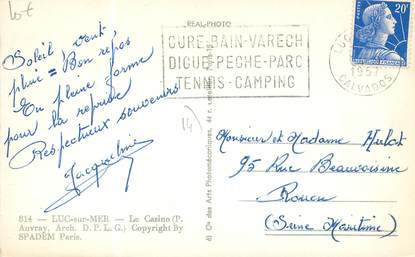 lot
REAL-PHOTO
CURE-BAIN-VARECH
DIGUE-PECHE-PARC
TENNIS-CAMPING
20F
LUC
1957
CALVADOS
Soleil, vent,
pluie = Bon repos
En pleine forme
pour la reprise
Respectueux souvenirs
Jacqueline
14)
Monsieur et Madame Hulot
95 Rue Beauvoisine
Rouen
(Seine Maritime)
814 — LUC-sur-MER — Le Casino (P.
Auvray, Arch. D. P. L. G.) Copyright By
SPADEM Paris.
Cie des Arts Photomécaniques